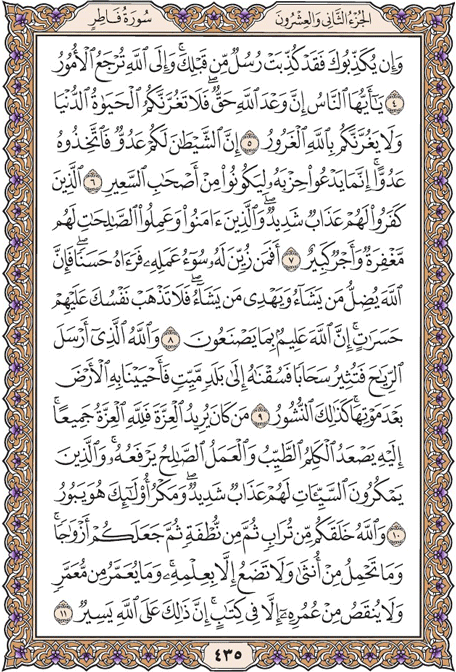 سُورَةُ فَاطِرٍ
الجُزْءُ الثَّانِي وَالعِشْرُونَ
وَإِن يُكَذِّبُوكَ فَقَدْ كُذِّبَتْ رُسُلٌ مِّن قَبْلِكَ ۚ وَإِلَى ٱللَّهِ تُرْجَعُ ٱلْأُمُورُ
٤ يَٰٓأَيُّهَا ٱلنَّاسُ إِنَّ وَعْدَ ٱللَّهِ حَقٌّ ۖ فَلَا تَغُرَّنَّكُمُ ٱلْحَيَوٰةُ ٱلدُّنْيَا
وَلَا يَغُرَّنَّكُم بِٱللَّهِ ٱلْغَرُورُ ٥ إِنَّ ٱلشَّيْطَٰنَ لَكُمْ عَدُوٌّ فَٱتَّخِذُوهُ
عَدُوًّا ۚ إِنَّمَا يَدْعُوا۟ حِزْبَهُۥ لِيَكُونُوا۟ مِنْ أَصْحَٰبِ ٱلسَّعِيرِ ٦ ٱلَّذِينَ
كَفَرُوا۟ لَهُمْ عَذَابٌ شَدِيدٌ ۖ وَٱلَّذِينَ ءَامَنُوا۟ وَعَمِلُوا۟ ٱلصَّٰلِحَٰتِ لَهُم
مَّغْفِرَةٌ وَأَجْرٌ كَبِيرٌ ٧ أَفَمَن زُيِّنَ لَهُۥ سُوٓءُ عَمَلِهِۦ فَرَءَاهُ حَسَنًا ۖ فَإِنَّ
ٱللَّهَ يُضِلُّ مَن يَشَآءُ وَيَهْدِى مَن يَشَآءُ ۖ فَلَا تَذْهَبْ نَفْسُكَ عَلَيْهِمْ
حَسَرَٰتٍ ۚ إِنَّ ٱللَّهَ عَلِيمٌۢ بِمَا يَصْنَعُونَ ٨ وَٱللَّهُ ٱلَّذِىٓ أَرْسَلَ
ٱلرِّيَٰحَ فَتُثِيرُ سَحَابًا فَسُقْنَٰهُ إِلَىٰ بَلَدٍ مَّيِّتٍ فَأَحْيَيْنَا بِهِ ٱلْأَرْضَ
بَعْدَ مَوْتِهَا ۚ كَذَٰلِكَ ٱلنُّشُورُ ٩ مَن كَانَ يُرِيدُ ٱلْعِزَّةَ فَلِلَّهِ ٱلْعِزَّةُ جَمِيعًا ۚ
إِلَيْهِ يَصْعَدُ ٱلْكَلِمُ ٱلطَّيِّبُ وَٱلْعَمَلُ ٱلصَّٰلِحُ يَرْفَعُهُۥ ۚ وَٱلَّذِينَ
يَمْكُرُونَ ٱلسَّيِّـَٔاتِ لَهُمْ عَذَابٌ شَدِيدٌ ۖ وَمَكْرُ أُو۟لَٰٓئِكَ هُوَ يَبُورُ
١٠ وَٱللَّهُ خَلَقَكُم مِّن تُرَابٍ ثُمَّ مِن نُّطْفَةٍ ثُمَّ جَعَلَكُمْ أَزْوَٰجًا ۚ
وَمَا تَحْمِلُ مِنْ أُنثَىٰ وَلَا تَضَعُ إِلَّا بِعِلْمِهِۦ ۚ وَمَا يُعَمَّرُ مِن مُّعَمَّرٍ
وَلَا يُنقَصُ مِنْ عُمُرِهِۦٓ إِلَّا فِى كِتَٰبٍ ۚ إِنَّ ذَٰلِكَ عَلَى ٱللَّهِ يَسِيرٌ ١١
٤٣٥